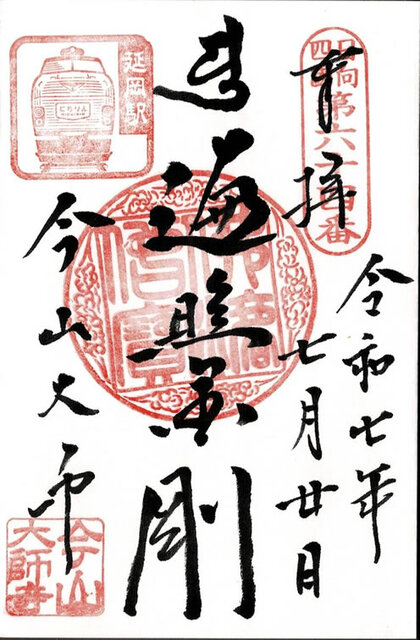 日向
四国
第六十
番
奉拝
令和七年
七月廿日
遍照金剛
延岡駅
にちりん
今山大师
今山
大師寺